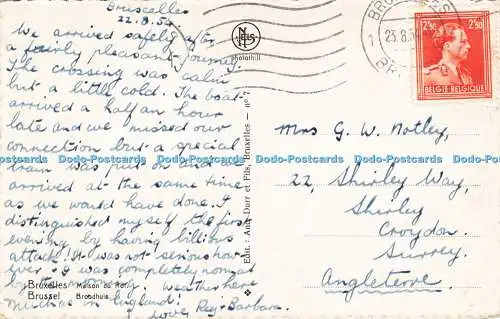 Bruscelles
22.8.54
We arrived safely after
a fairly pleasant journey.
The crossing was calm
but a little cold. The boat
arrived a half an hour
late and we missed our
connection but a special
train was put on and we
arrived at the same time
as we would have done. I
distinguished myself the first
evening by having billious
attack! It was not serious how-
ever & I was completely normal
by the morning. Weather here
much as in England!
Love Reg & Barbara.
Bruxelles Maison du Roi.
Brussel Broodhuis.
NELS
Photothill
Edit.: Ant. Durr et Fils, Bruxelles - n° 7
BRU
23.8.54
BR
2F50 2F50
BELGIE BELGIQUE
Mrs G. W. Notley,
22, Shirley Way,
Shirley
Croydon.
Surrey.
Angleterre.
Dodo-Postcards Dodo-Postcards Dodo-Postcards Dodo-Postcards Dodo-Postcards